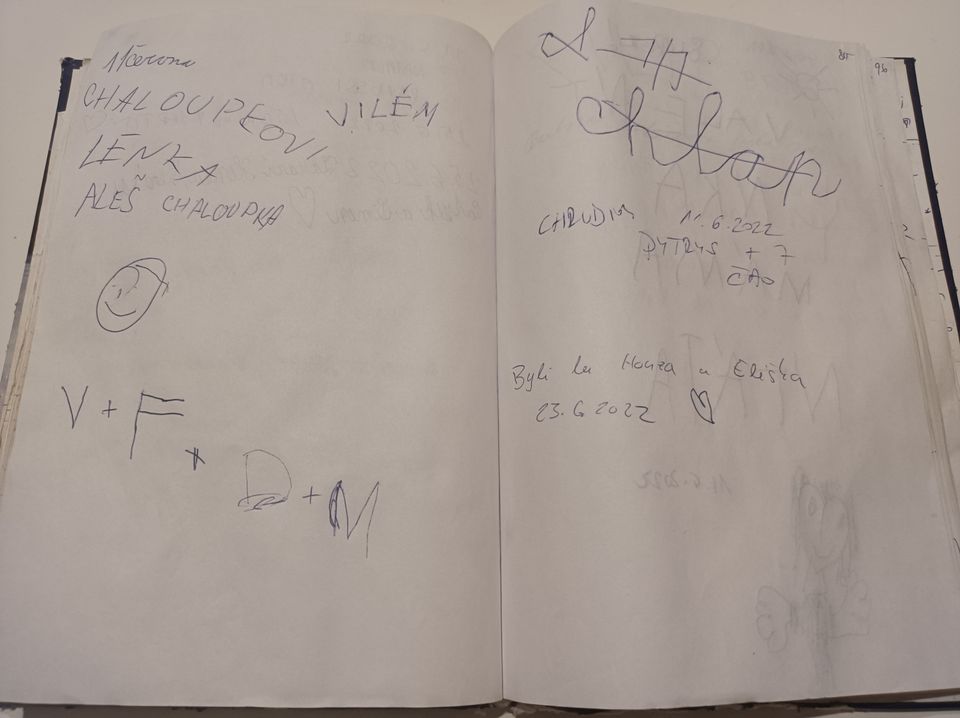 11. června
CHALOUPKOVI VILÉM
LENKA
ALEŠ CHALOUPKA
V + F + D + M
chlap
CHRUDIM 11.6.2022
PYTRYS + 7
ČAO
Byli tu Honza a Eliška
23.6.2022